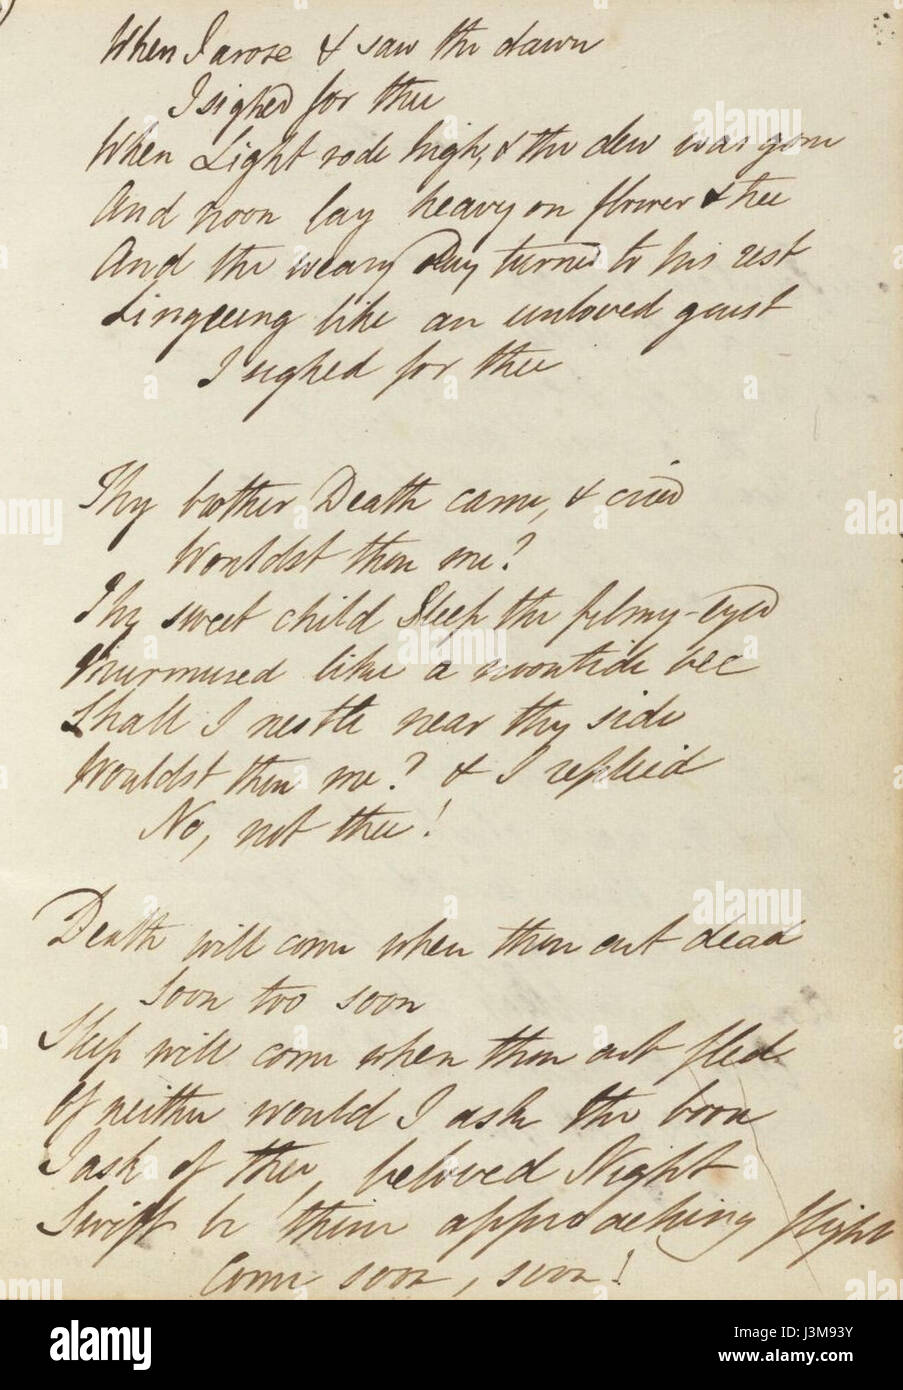 When I arose & saw the dawn
I sighed for thee
When Light rode high, & the dew was gone
And noon lay heavy on flower & tree
And the weary Day turned to his rest
Lingering like an unloved guest
I sighed for thee
Thy brother Death came, & cried
Wouldst thou me?
Thy sweet child Sleep the filmy-eyed
Murmured like a noontide bee
Shall I nestle near thy side
Wouldst thou me? & I replied
No, not thee!
Death will come when thou art dead
Soon too soon
Sleep will come when thou art fled
Of neither would I ask the boon
I ask of thee, beloved Night
Swift be thine approaching flight
Come soon, soon!
alamy
J3M93Y
www.alamy.com